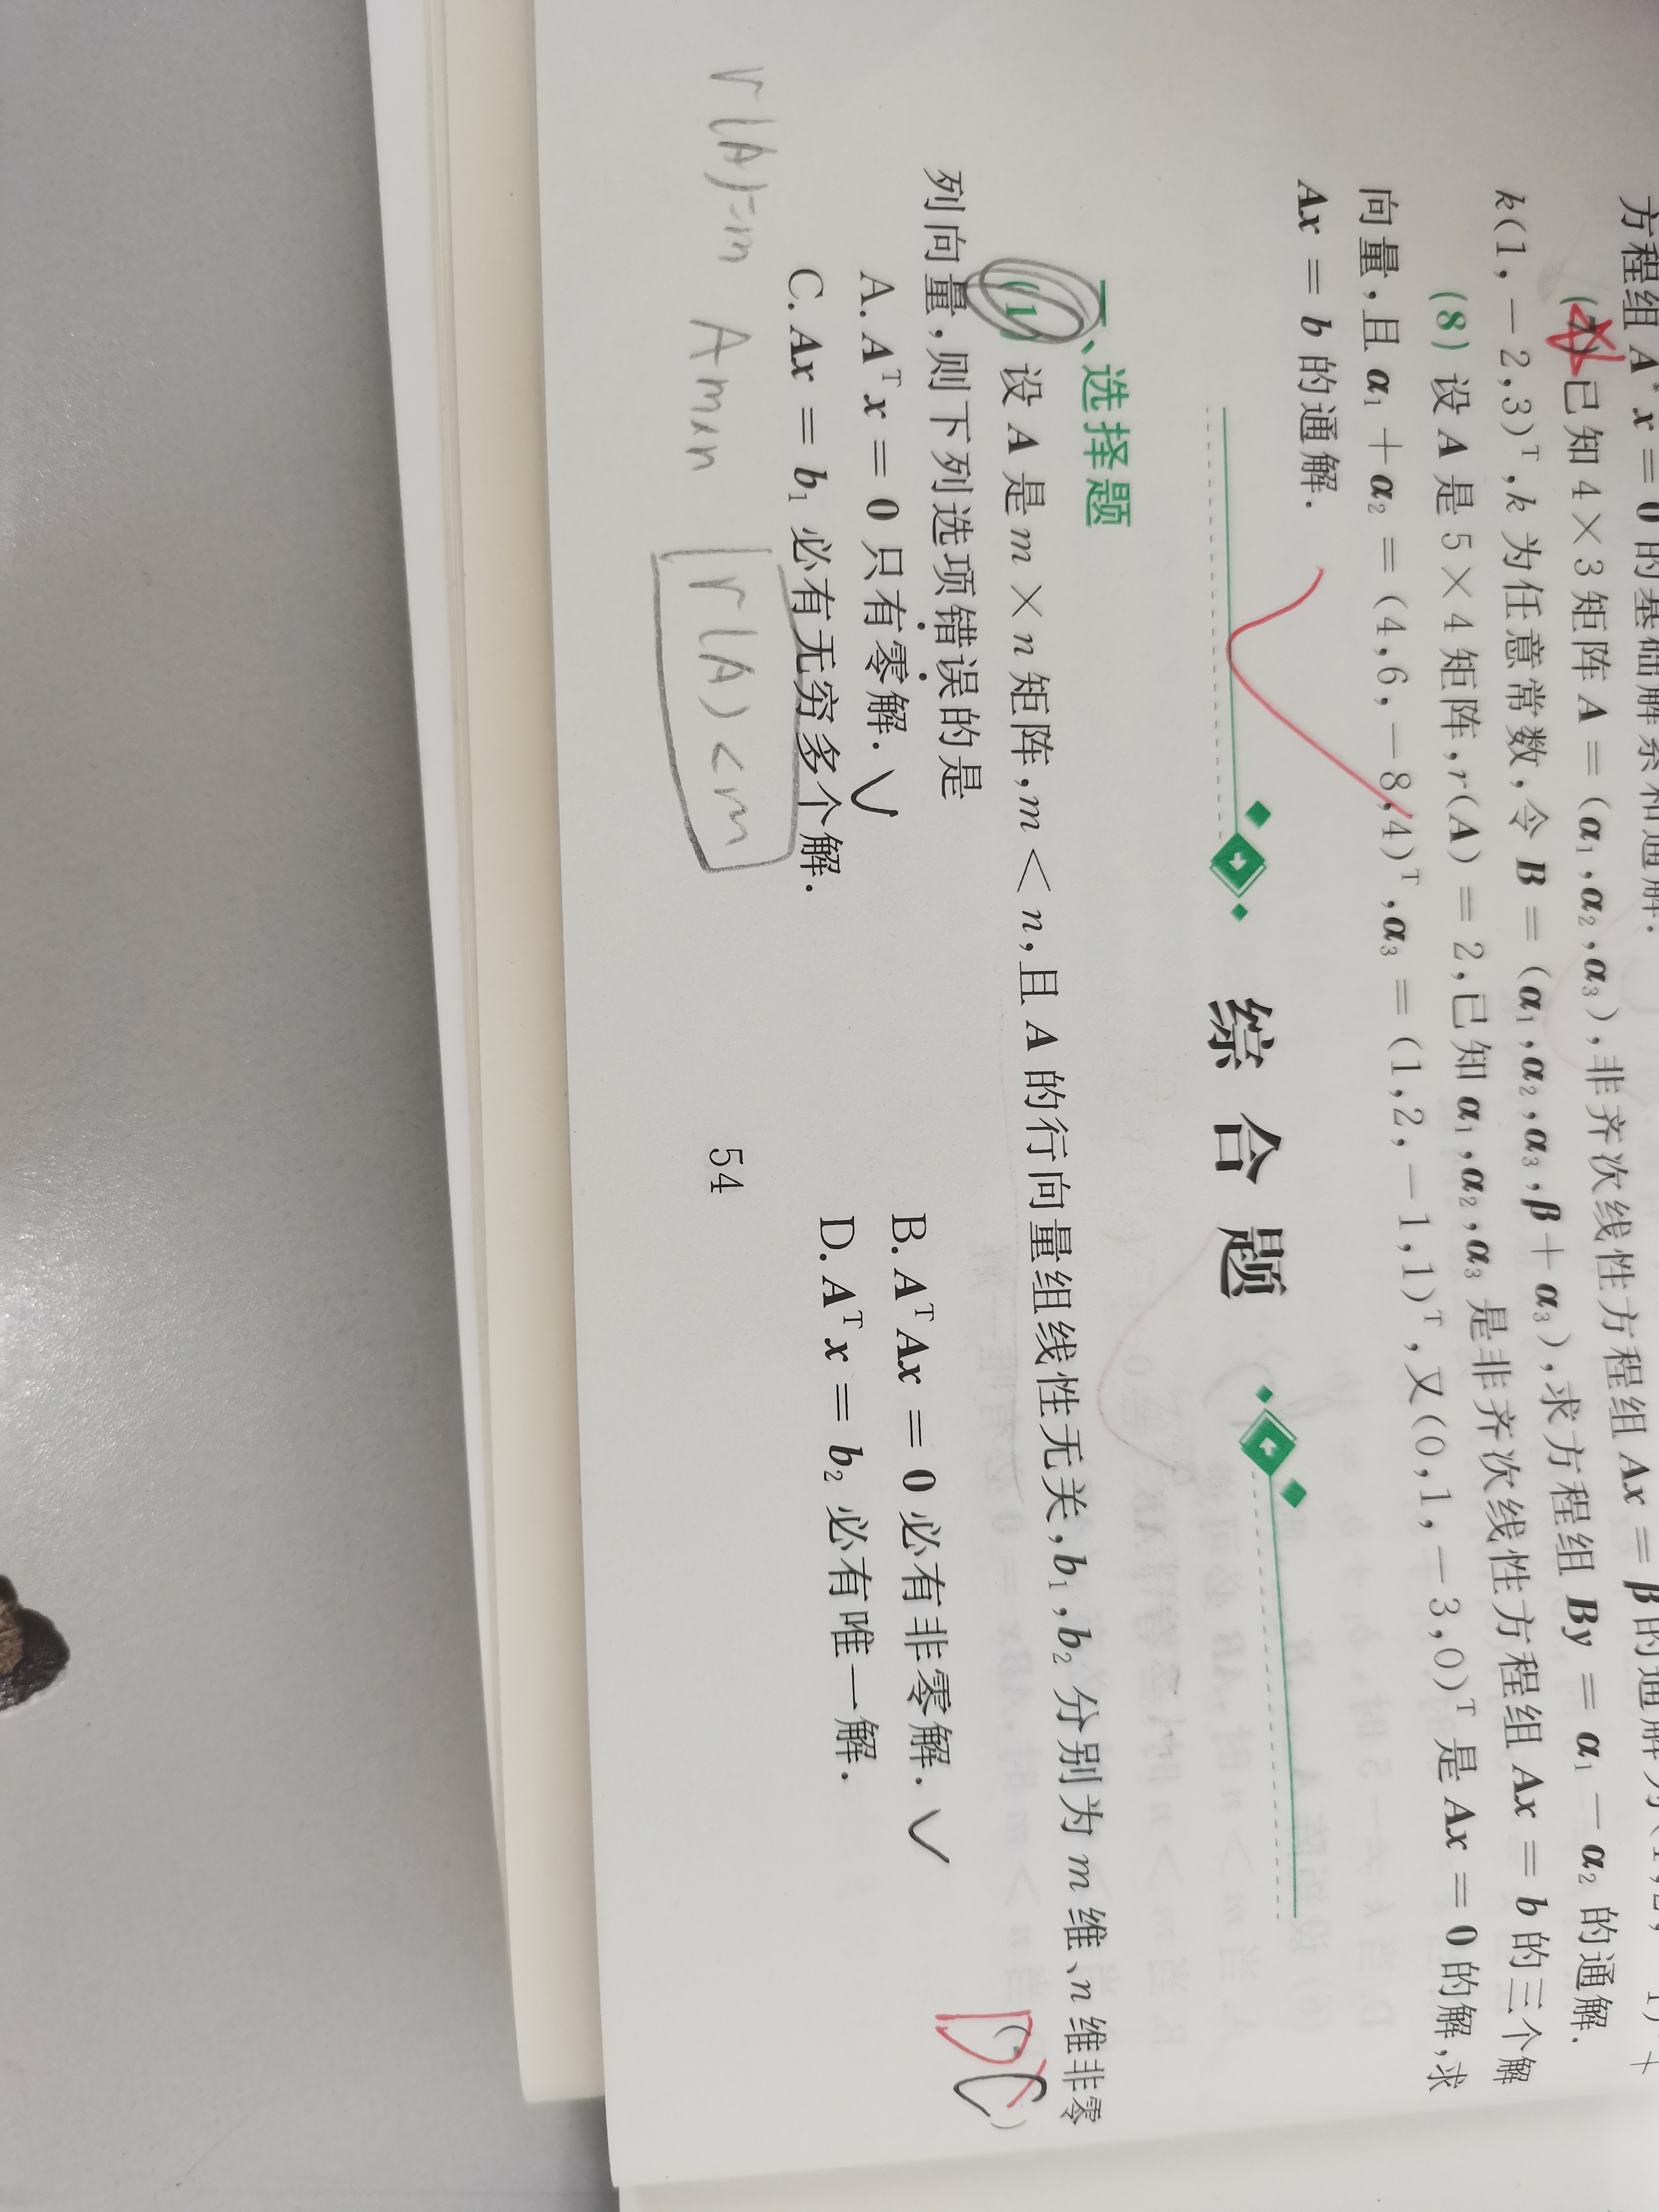 方程组 A* x = 0 的基础解系和通解.
(7) 已知 4 × 3 矩阵 A = (α₁, α₂, α₃), 非齐次线性方程组 Ax = β 的通解为
k(1, -2, 3)ᵀ, k 为任意常数, 令 B = (α₁, α₂, α₃, β + α₃), 求方程组 By = α₁ - α₂ 的通解.
(8) 设 A 是 5 × 4 矩阵, r(A) = 2, 已知 α₁, α₂, α₃ 是非齐次线性方程组 Ax = b 的三个解
向量, 且 α₁ + α₂ = (4, 6, -8, 4)ᵀ, α₃ = (1, 2, -1, 1)ᵀ, 又 (0, 1, -3, 0)ᵀ 是 Ax = 0 的解, 求
Ax = b 的通解.
综合题
一、选择题
(1) 设 A 是 m × n 矩阵, m < n, 且 A 的行向量组线性无关, b₁, b₂ 分别为 m 维、n 维非零
列向量, 则下列选项错误的是 ( )
A. Aᵀx = 0 只有零解. √ B. AᵀAx = 0 必有非零解. √
C. Ax = b₁ 必有无穷多个解. D. Aᵀx = b₂ 必有唯一解.
r(A)=m Am×n r(A)<m
54